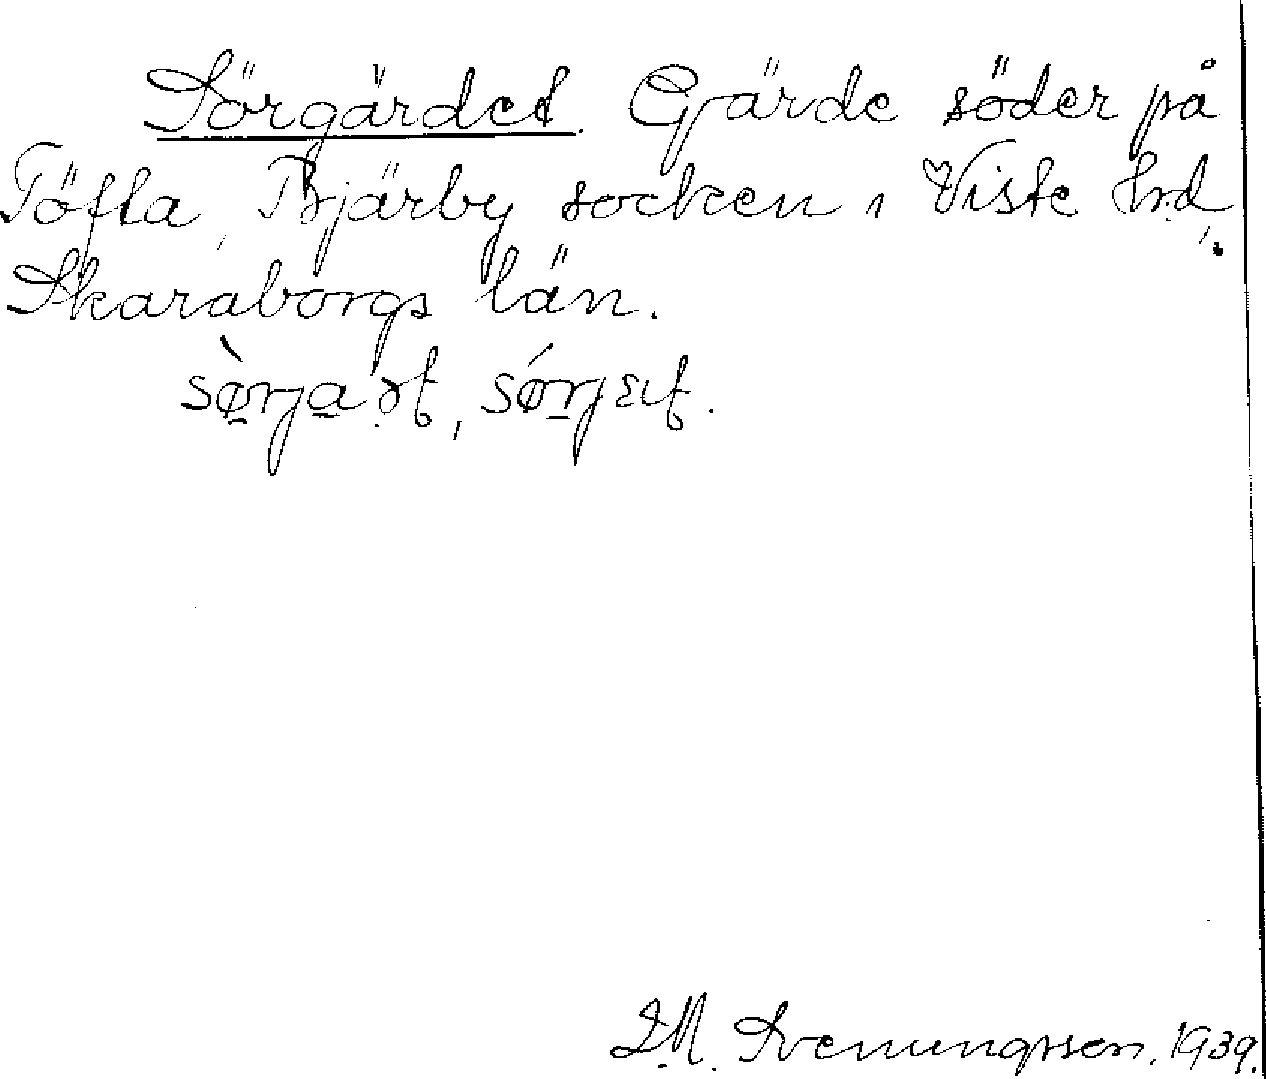 Sörgärdet. Gärde söder på
Töfta, Bjärby socken i Viste hrd,
Skaraborgs län.
D.M. Svenungsson. 1939.